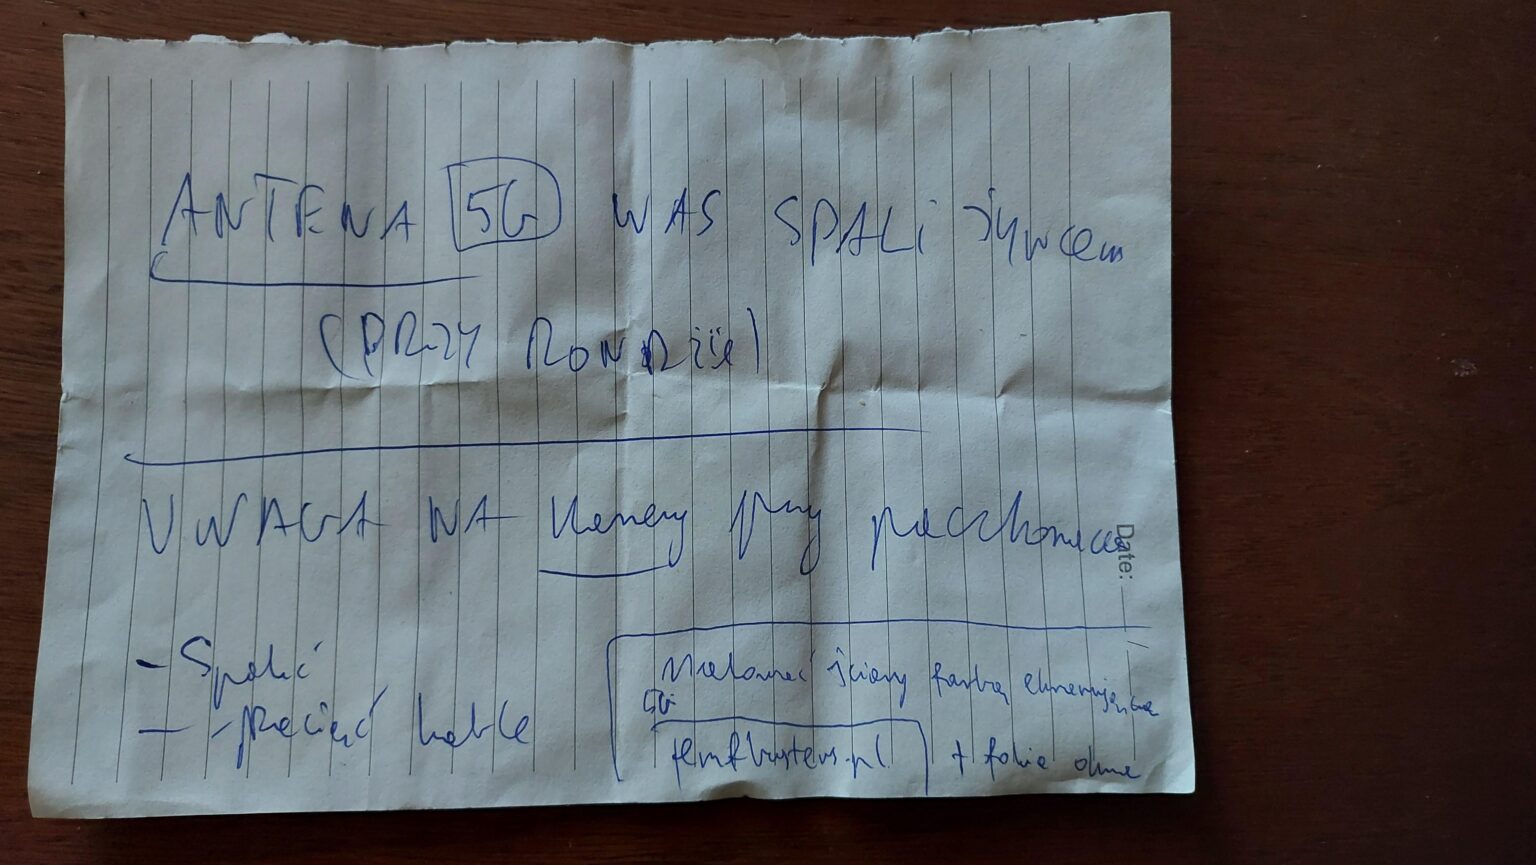 ANTENA 5G WAS SPALI żywcem
(PRZY RONDZIE)
UWAGA NA kamery przy paczkomacie
- Spalić
- przeciąć kable
Malować ściany farbą ekranującą
5G
emfbusters.pl + folie okna
Date: